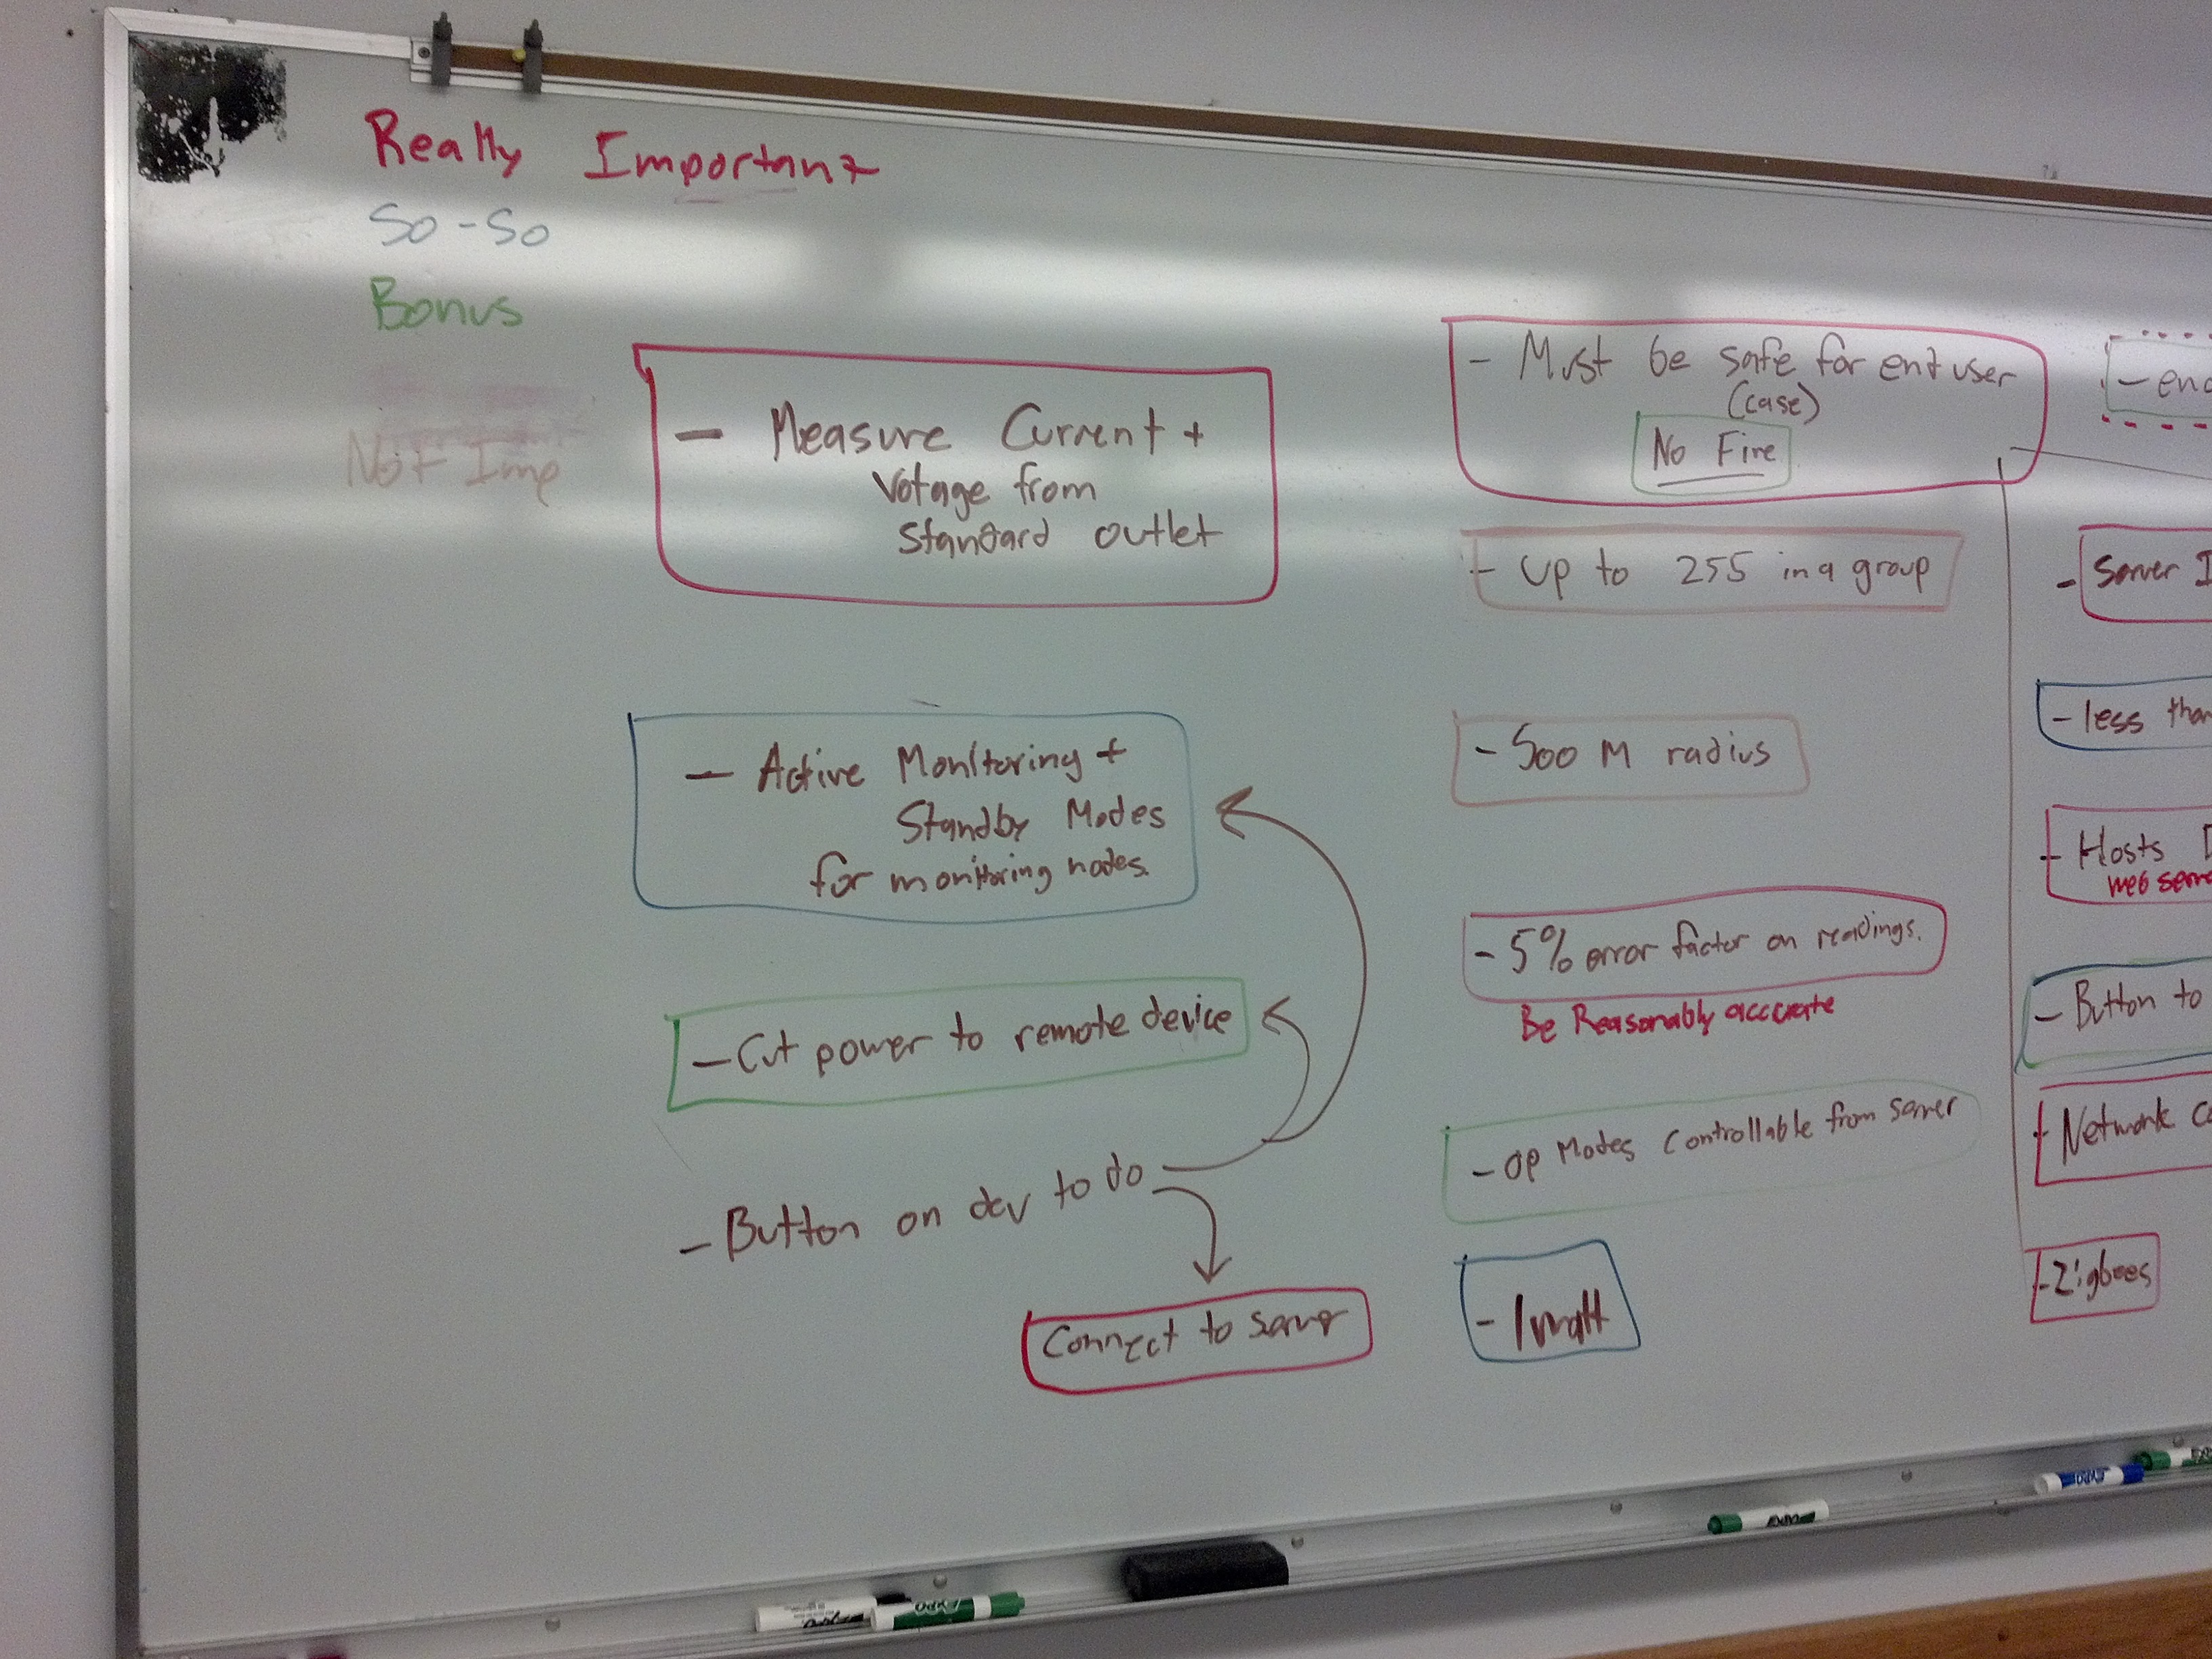 Really Important
So-So
Bonus
Not Imp
- Measure Current +
Votage from
Standard outlet
- Active Monitoring +
Standby Modes
for monitoring nodes.
- Cut power to remote device
- Button on dev to do
Connect to server
- Must be safe for end user
(case)
No Fire
- Up to 255 in a group
- 500 M radius
- 5% error factor on readings.
Be Reasonably accurate
- OP Modes Controllable from server
- 1 watt
- end
- Server I
- less than
- Hosts
web serv
- Button to
- Network Co
- Zigbees
EXPO
EXPO
EXPO
EXPO